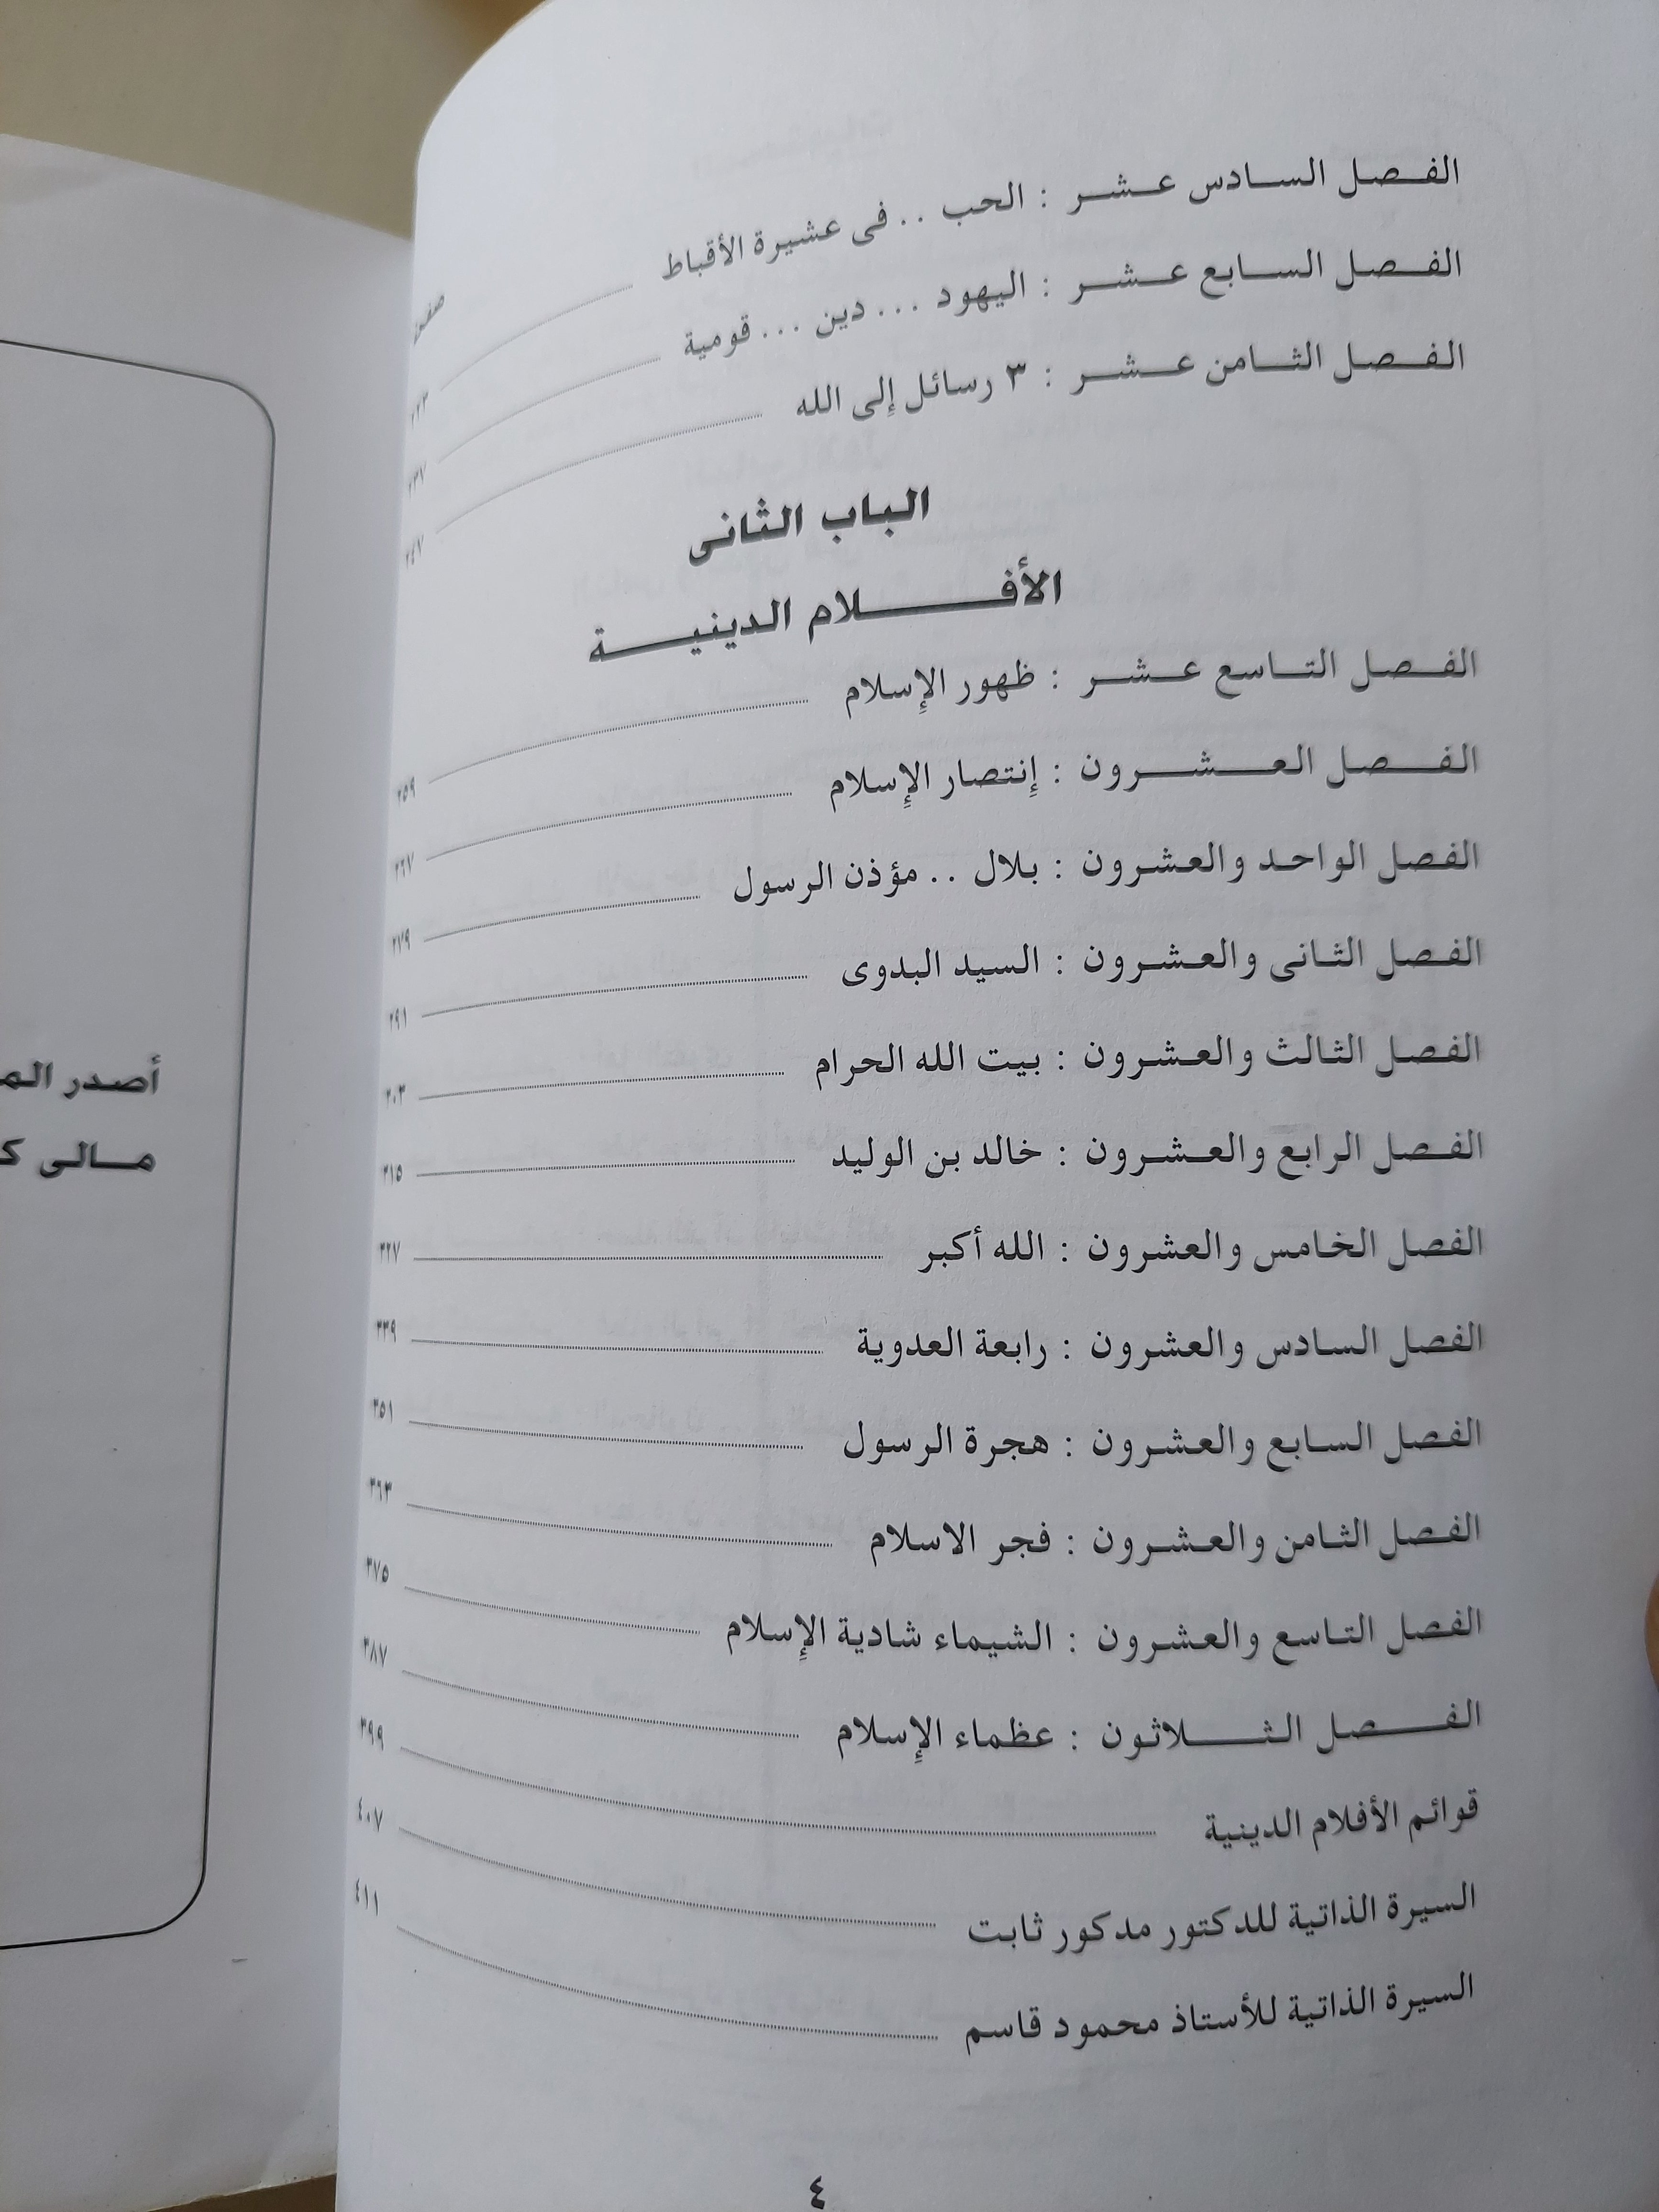 صفحة
الفصل السادس عشر : الحب .. فى عشيرة الأقباط ٢٢٣
الفصل السابع عشر : اليهود ... دين ... قومية ٢٣٧
الفصل الثامن عشر : ٣ رسائل إلى الله ٢٤٧
الباب الثانى
الأفلام الدينية
الفصل التاسع عشر : ظهور الإسلام ٢٥٩
الفصل العشرون : إنتصار الإسلام ٢٦٧
الفصل الواحد والعشرون : بلال .. مؤذن الرسول ٢٧٩
الفصل الثانى والعشرون : السيد البدوى ٢٩١
الفصل الثالث والعشرون : بيت الله الحرام ٣٠٣
الفصل الرابع والعشرون : خالد بن الوليد ٣١٥
الفصل الخامس والعشرون : الله أكبر ٣٢٧
الفصل السادس والعشرون : رابعة العدوية ٣٣٩
الفصل السابع والعشرون : هجرة الرسول ٣٥١
الفصل الثامن والعشرون : فجر الاسلام ٣٦٣
الفصل التاسع والعشرون : الشيماء شادية الإسلام ٣٧٥
الفصل الثلاثون : عظماء الإسلام ٣٨٧
قوائم الأفلام الدينية ٣٩٩
السيرة الذاتية للدكتور مدكور ثابت ٤٠٧
السيرة الذاتية للأستاذ محمود قاسم ٤١١
٤
أصدر
مالى